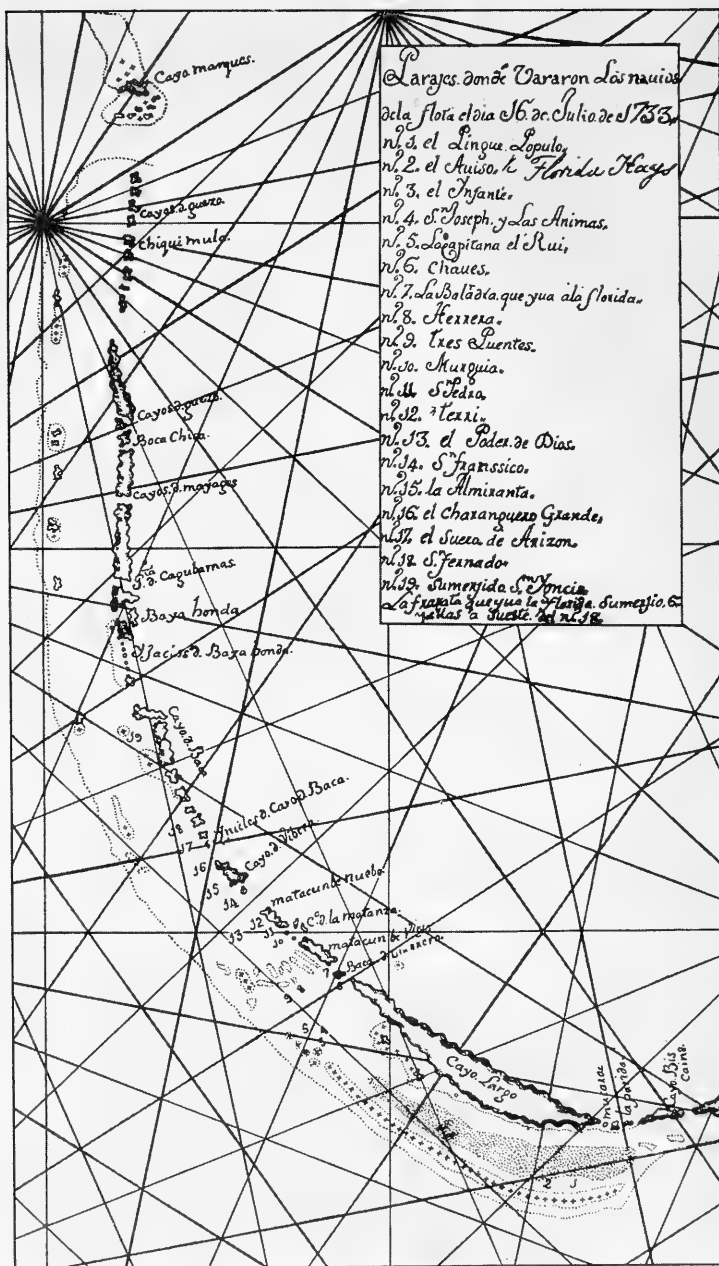 Parajes donde Vararon Los navios
dela flota el dia 16 de Julio de 1733.
nº. 1. el Pingue Populo,
nº. 2. el Auiso, Florida Keys
nº. 3. el Ynfante.
nº. 4. Sn. Joseph. y Las Animas,
nº. 5. La Capitana el Rui,
nº. 6. chaues.
nº. 7. La Baladra que yua ala florida.
nº. 8. Herrera.
nº. 9. tres Puentes.
nº. 10. Murguia.
nº. 11. Sn. Pedro
nº. 12. terri.
nº. 13. el Poder de Dios.
nº. 14. Sn. franssico.
nº. 15. la Almiranta.
nº. 16. el Charanguero Grande,
nº. 17. el Suera de Arizon.
nº. 18. Sn. fernado.
nº. 19. Sumersida Sn.
La fragata que yua la Florida Sumersio. 6
a Sueste del nº. 18.
Cayo marques.
Cayos d gueso.
chiqui mula.
Cayos d gueso.
Boca Chica.
Cayos d mayages
Pta. d Cagubarnas
Baya honda
d Baya honda.
Cayo d Baca
19
18
17
Cayo d Baca.
16
Cayo d Vibora
15
14
matacumbe nuebo.
13 12
11
10
Co. d la matanza.
matacumbe Viejo
9
8
7
6
5
4
Cayo Largo
Cayo Bis
caino.
3
2
1